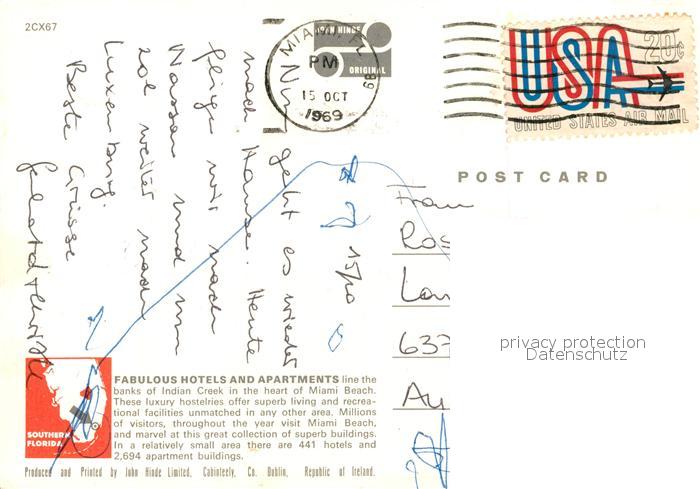 2CX67
JOHN HINDE
ORIGINAL
MIAMI, FL
PM
15 OCT
1969
USA 20c
UNITED STATES AIR MAIL
POST CARD
Nun geht es wieder
nach Hause. Heute
fliegen wir nach
Nassau und um
weiter nach
Luxemburg.
Beste Grüsse
Frau
Ros
Lou
637
Au
privacy protection
Datenschutz
SOUTHERN
FLORIDA
FABULOUS HOTELS AND APARTMENTS line the
banks of Indian Creek in the heart of Miami Beach.
These luxury hostelries offer superb living and recrea-
tional facilities unmatched in any other area. Millions
of visitors, throughout the year visit Miami Beach,
and marvel at this great collection of superb buildings.
In a relatively small area there are 441 hotels and
2,694 apartment buildings.
Produced and Printed by John Hinde Limited, Cabinteely, Co. Dublin, Republic of Ireland.